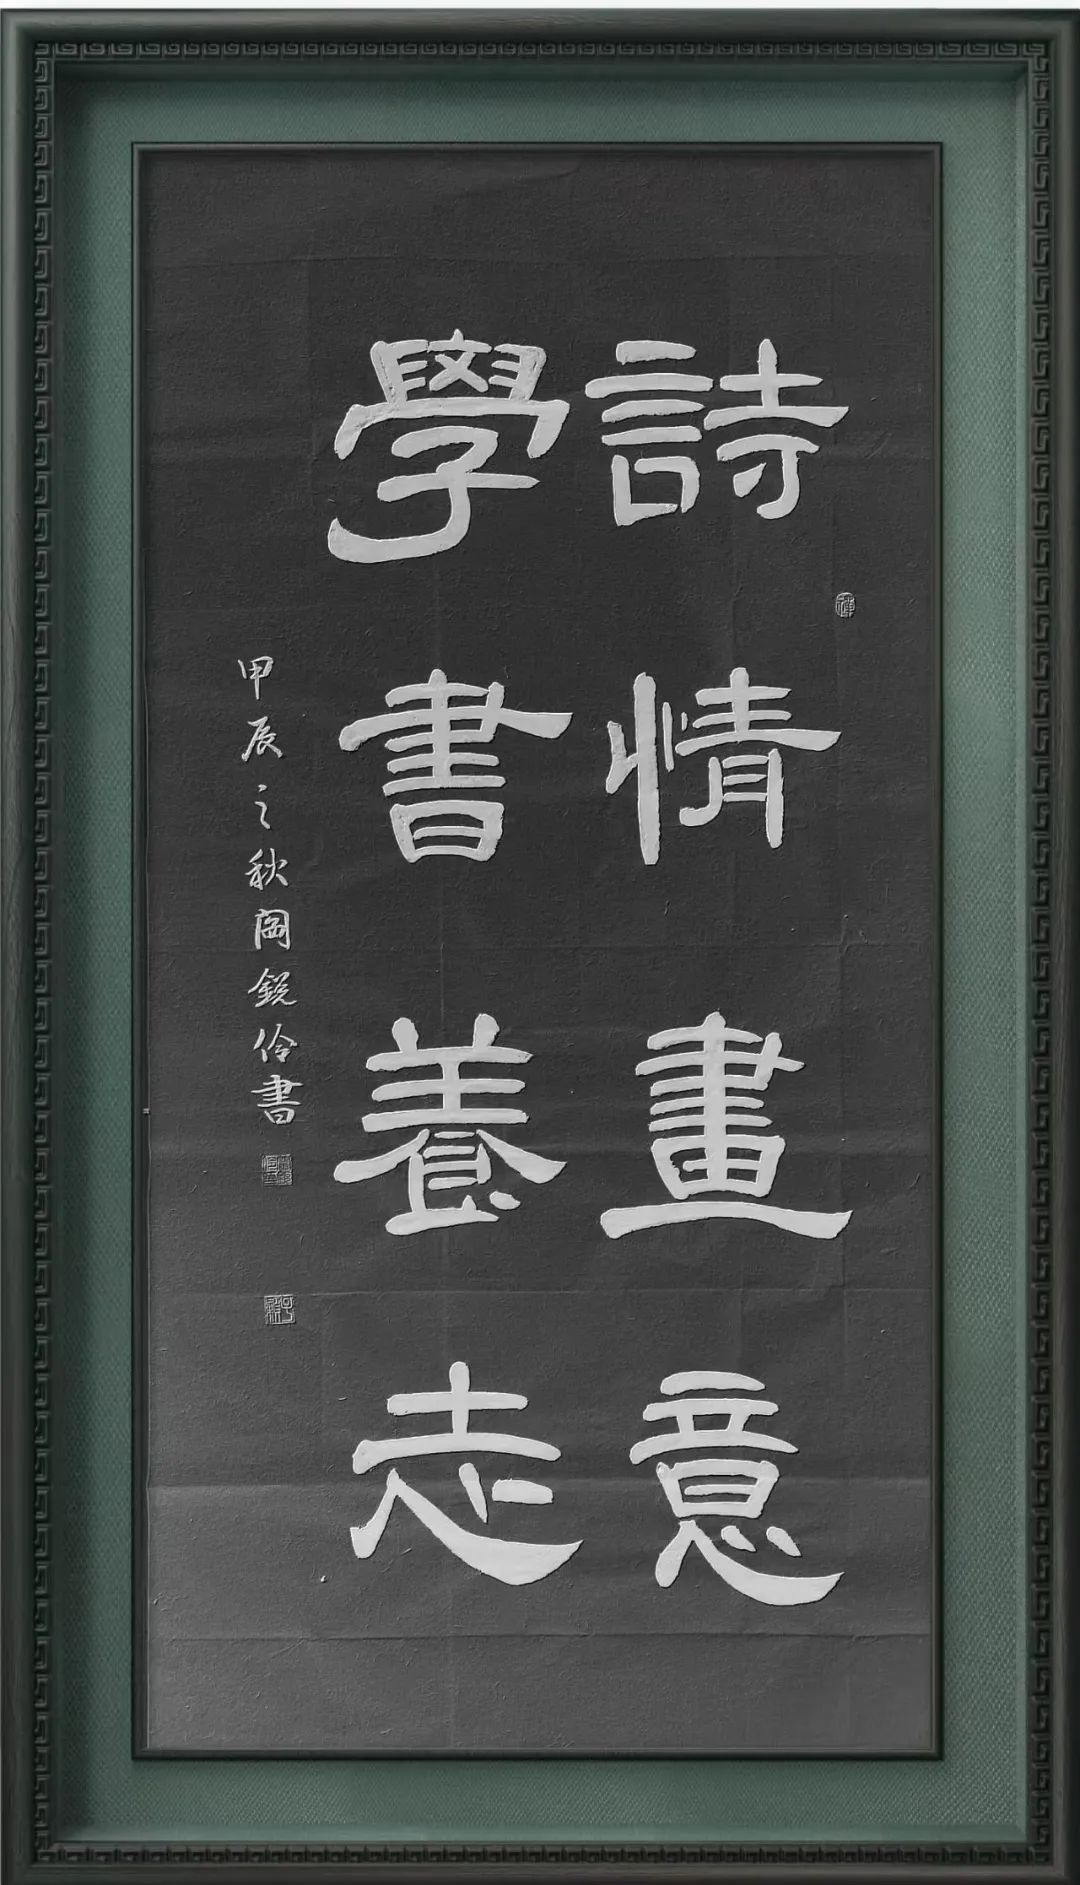 詩情畫意
學書養志
甲辰之秋阎銳伶書